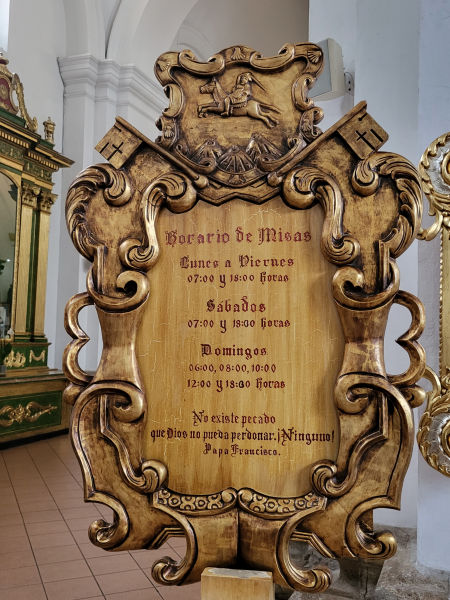 Horario de Misas
Lunes a Viernes
07:00 y 18:00 horas
Sábados
07:00 y 18:00 horas
Domingos
06:00, 08:00, 10:00
12:00 y 18:30 horas
No existe pecado
que Dios no pueda perdonar. ¡Ninguno!
Papa Francisco.